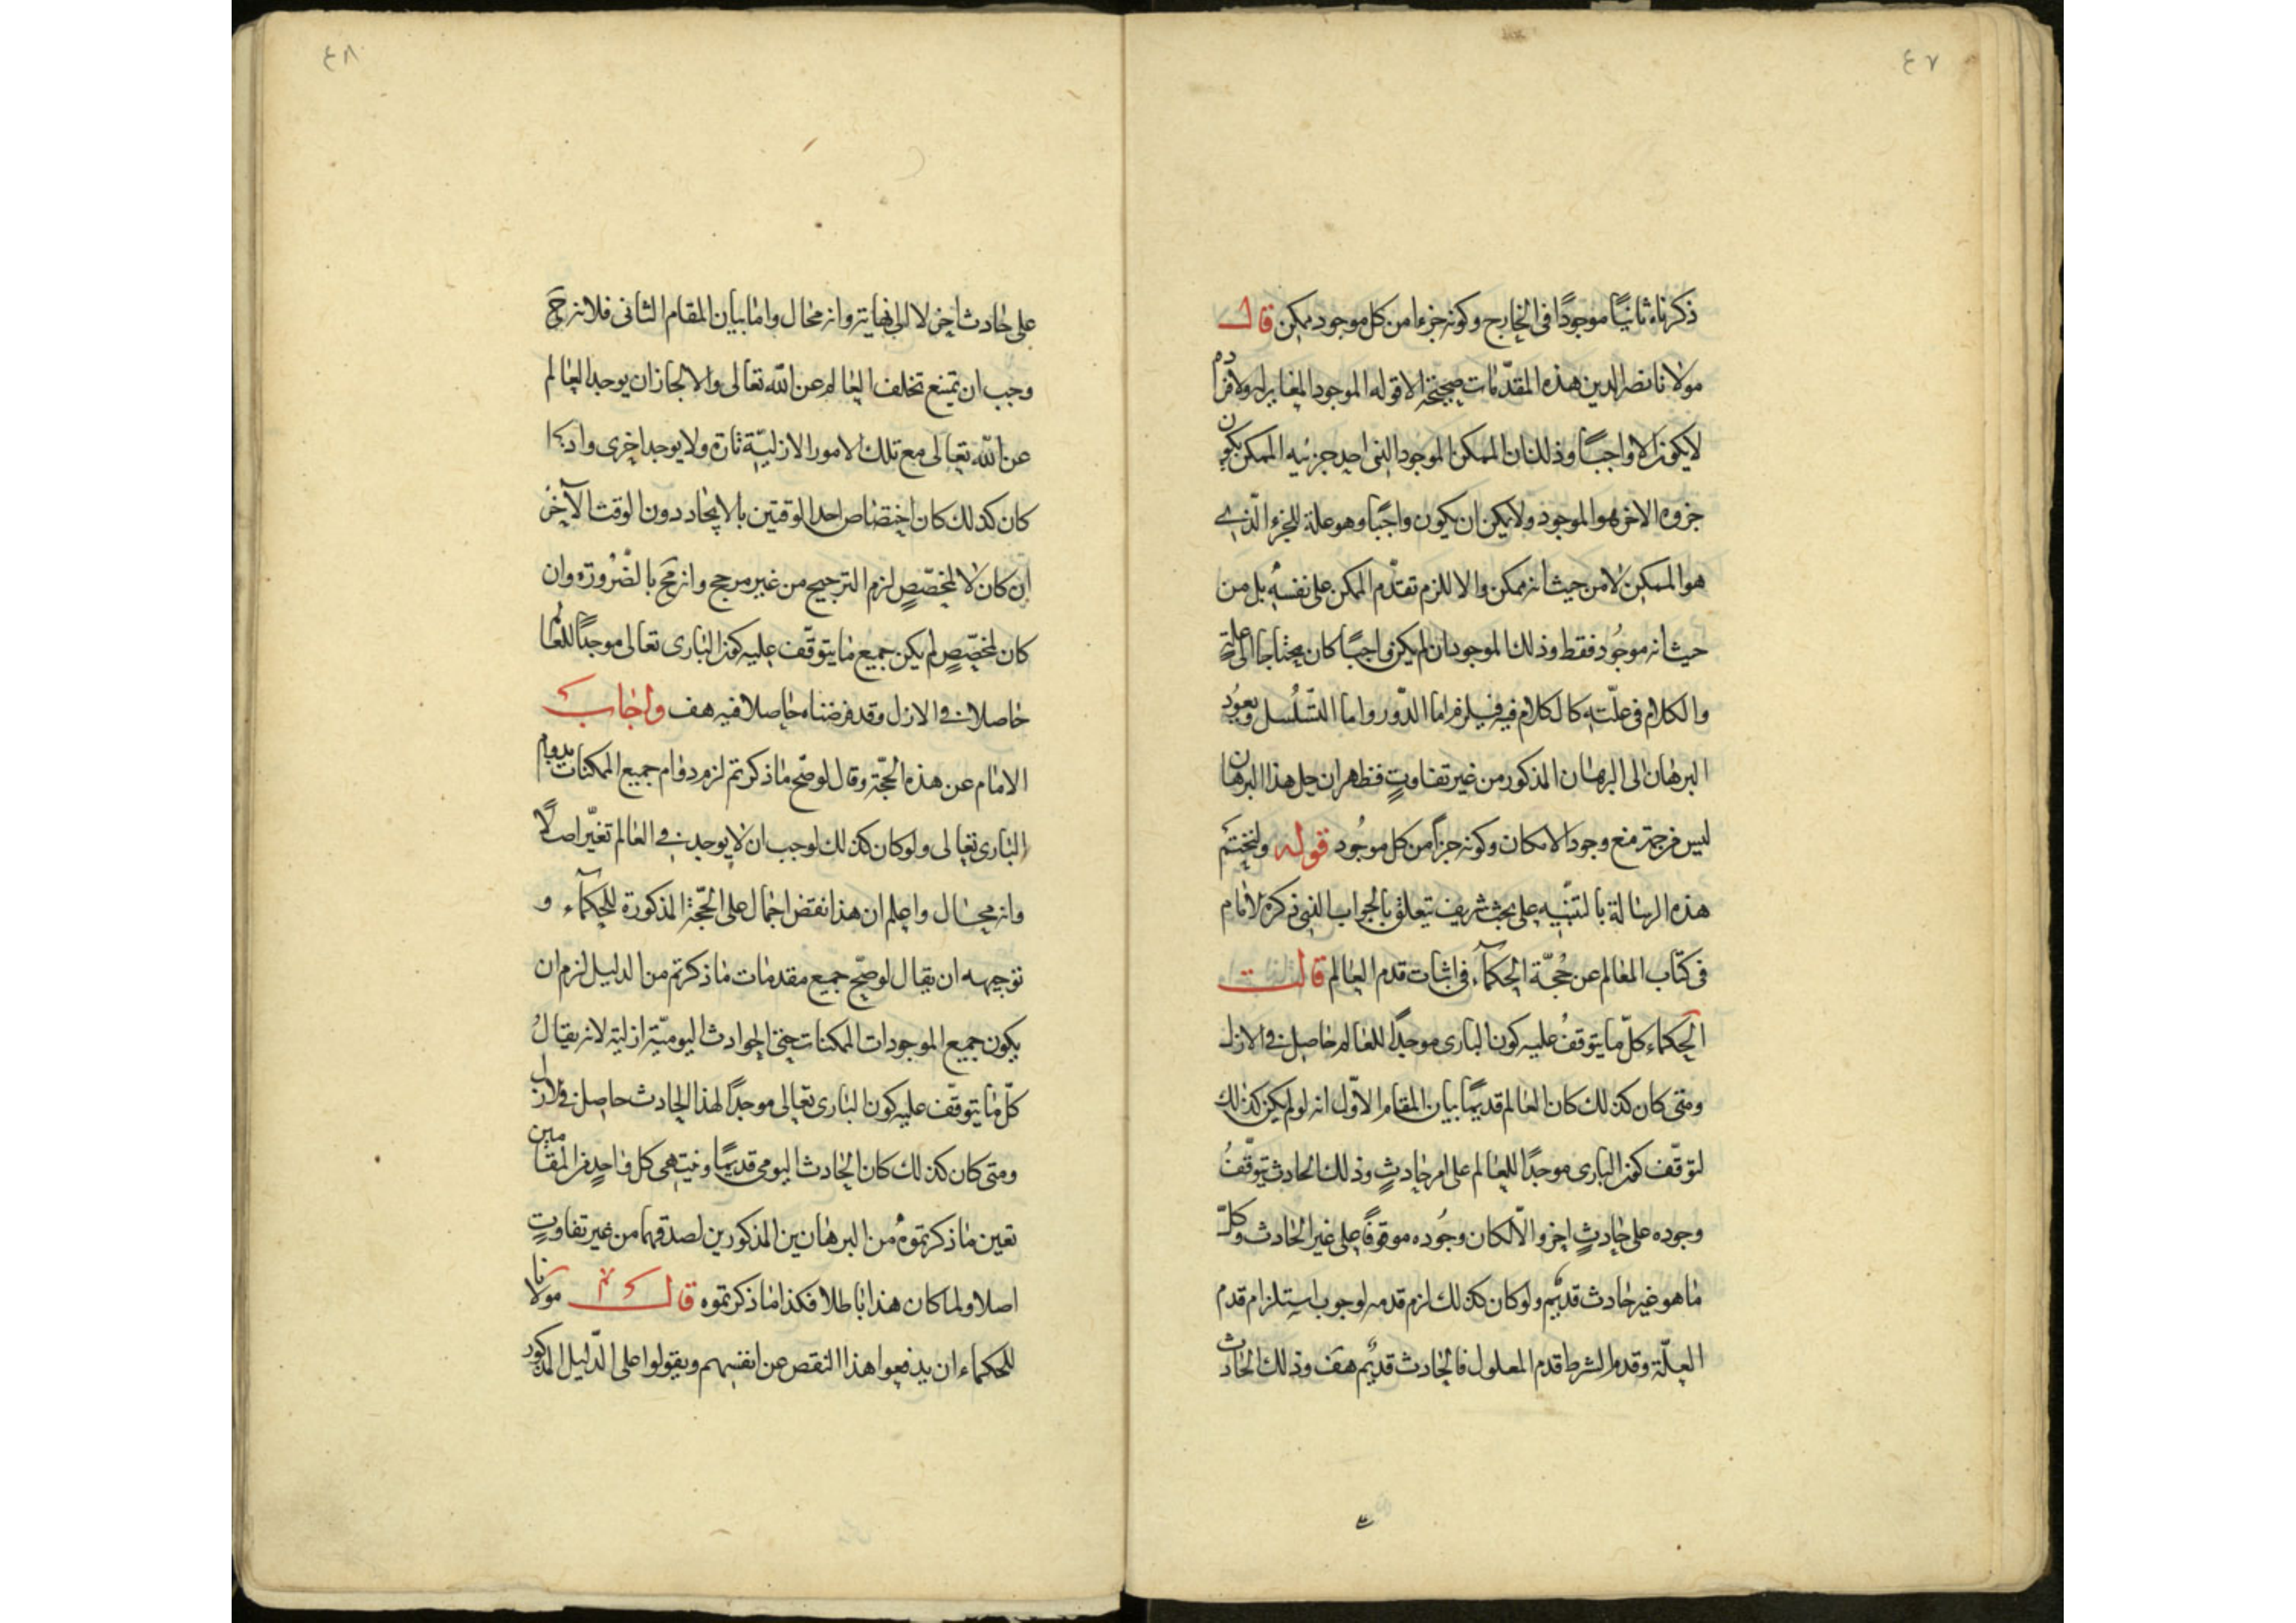 ٤٧
ذكرناه ثانيًا موجودًا فى الخارج وكونه جزءا من كل موجود ممكن قال
مولانا نصير الدين هذه المقدّمات صحيحة الا قوله الموجود المغاير له ولافراده
لا يكون الا واجبًا وذلك ان الممكن الموجود الذى احد جزئيه الممكن يكون
جزوه الاخر هو الموجود ولا يمكن ان يكون واجبًا وهو علة للجزء الّذى
هو الممكن لا من حيث انه ممكن والا للزم تقدّم الممكن على نفسه بل من
حيث انه موجُود فقط وذلك الموجود ان لم يكن واجبًا كان محتاجا الى علة
والكلام فى علّته كالكلام فيه فيلزم اما الدّور واما التّسلُسل ويعوُد
البرهان الى البرهان المذكور من غير تفاوتٍ فظهر ان حل هذا البرهان
ليس من جهة منع وجود الامكان وكونه جزأ من كل موجُود قوله ولنختم
هذه الرسالة بالتنبيه على بحث شريف يتعلق بالجواب الذى ذكره الامام
فى كتاب المعالم عن حُجّة الحكمآء فى اثبات قدم العالم قالت
الحكماء كلّ ما يتوقفُ عليه كون البارى موجدًا للعالم حاصل فى الازل
ومتى كان كذلك كان العالم قديمًا بيان المقام الاوّل انه لو لم يكن كذلك
لتوقّف كون البارى موجدًا للعالم على امر حادثٍ وذلك الحادث يتوقّفُ
وجوده على حادثٍ اخر والّا لكان وجُوده موقوفًا على غير الحادث وكلّ
ما هو غير حادث قديم ولو كان كذلك لزم قدمه لوجوب استلزام قدم
العلّة وقدم الشرط قدم المعلول فالحادث قديم هف وذلك الحادث
٤٨
على حادث اخر لا الى نهاية وانه محال واما بيان المقام الثانى فلانه ح
وجب ان يمتنع تخلف العالم عن اللّه تعالى والا لجاز ان يوجد العالم
عن اللّه تعالى مع تلك الامور الازليّة تارة ولا يوجد اخرى واذا
كان كذلك كان اختصاص احد الوقتين بالايجاد دون الوقت الآخر
ان كان لا لمخصّصٍ لزم الترجيح من غير مرجح وانه مح بالضّرُورة وان
كان لمخصّصٍ لم يكن جميع ما يتوقّف عليه كون البارى تعالى موجدًا للعالم
حاصلا فى الازل وقد فرضناه حاصلا فيه هف واجاب
الامام عن هذه الحجّة وقال لو صح ما ذكرتم لزم دوام جميع الممكنات بدوام
البارى تعالى ولو كان كذلك لوجب ان لا يوجد فى العالم تغيّر اصلًا
وانه محال واعلم ان هذا نقض اجمال على الحجّة المذكورة للحكمآء و
توجيهه ان يقال لو صحّ جميع مقدمات ما ذكرتم من الدليل لزم ان
يكون جميع الموجودات الممكنات حتى الحوادث اليوميّة ازلية لانه يقالُ
كلّ ما يتوقّف عليه كون البارى تعالى موجدًا لهذا الحادث حاصل فى الازل
ومتى كان كذلك كان الحادث اليومى قديمًا وينتهى كل واحدٍ من المقامين
بعين ما ذكرتموهُ من البرهانين المذكورين لصدقهما من غير تفاوتٍ
اصلا ولما كان هذا باطلا فكذا ما ذكرتموه قال مولانا
للحكماء ان يدفعوا هذا النقص عن انفسهم ويقولوا على الدّليل المذكور